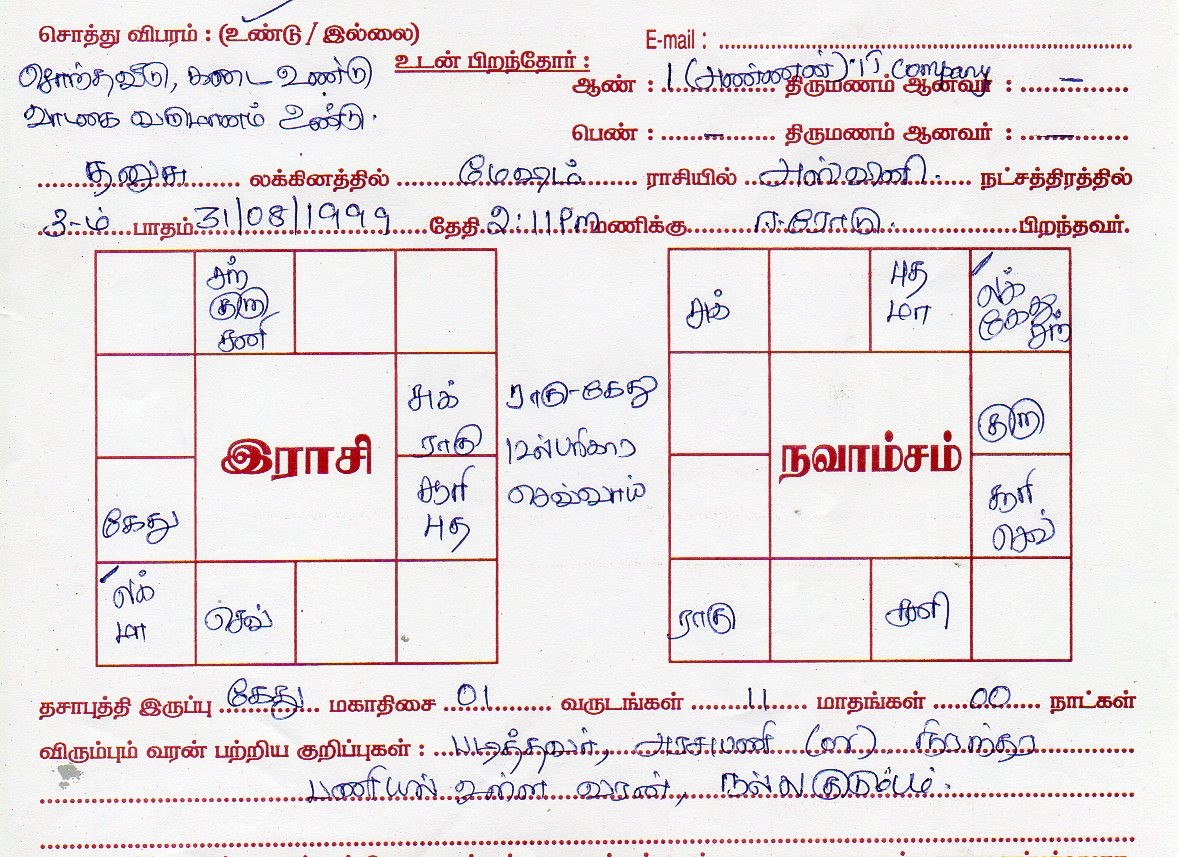 சொத்து விபரம் : (உண்டு / இல்லை)
E-mail :
சொந்தவீடு, கடை உண்டு
வாடகை வருமானம் உண்டு.
உடன் பிறந்தோர் :
ஆண் : 1 (அண்ணன்) IT Company திருமணம் ஆனவர் : –
பெண் : – திருமணம் ஆனவர் : –
தனுசு லக்கினத்தில் மேஷம் ராசியில் அஸ்வினி. நட்சத்திரத்தில்
3-ம் பாதம் 31/08/1999 தேதி 2:11 Pm மணிக்கு ஈரோடு. பிறந்தவர்.
சந்
குரு
சனி
சுக்
ராகு
சூரி
புத
கேது
லக்
மா
செவ்
இராசி
ராகு-கேது
செவ்வாய்
சுக்
புத
மா
லக்
கேது
சந்
குரு
சூரி
செவ்
ராகு
சனி
நவாம்சம்
தசாபுத்தி இருப்பு கேது மகாதிசை 01 வருடங்கள் 11 மாதங்கள் 00 நாட்கள்
விரும்பும் வரன் பற்றிய குறிப்புகள் : படித்தவர், அரசுபணி (or) நிரந்தர
பணியில் உள்ள வரன், நல்ல குடும்பம்.